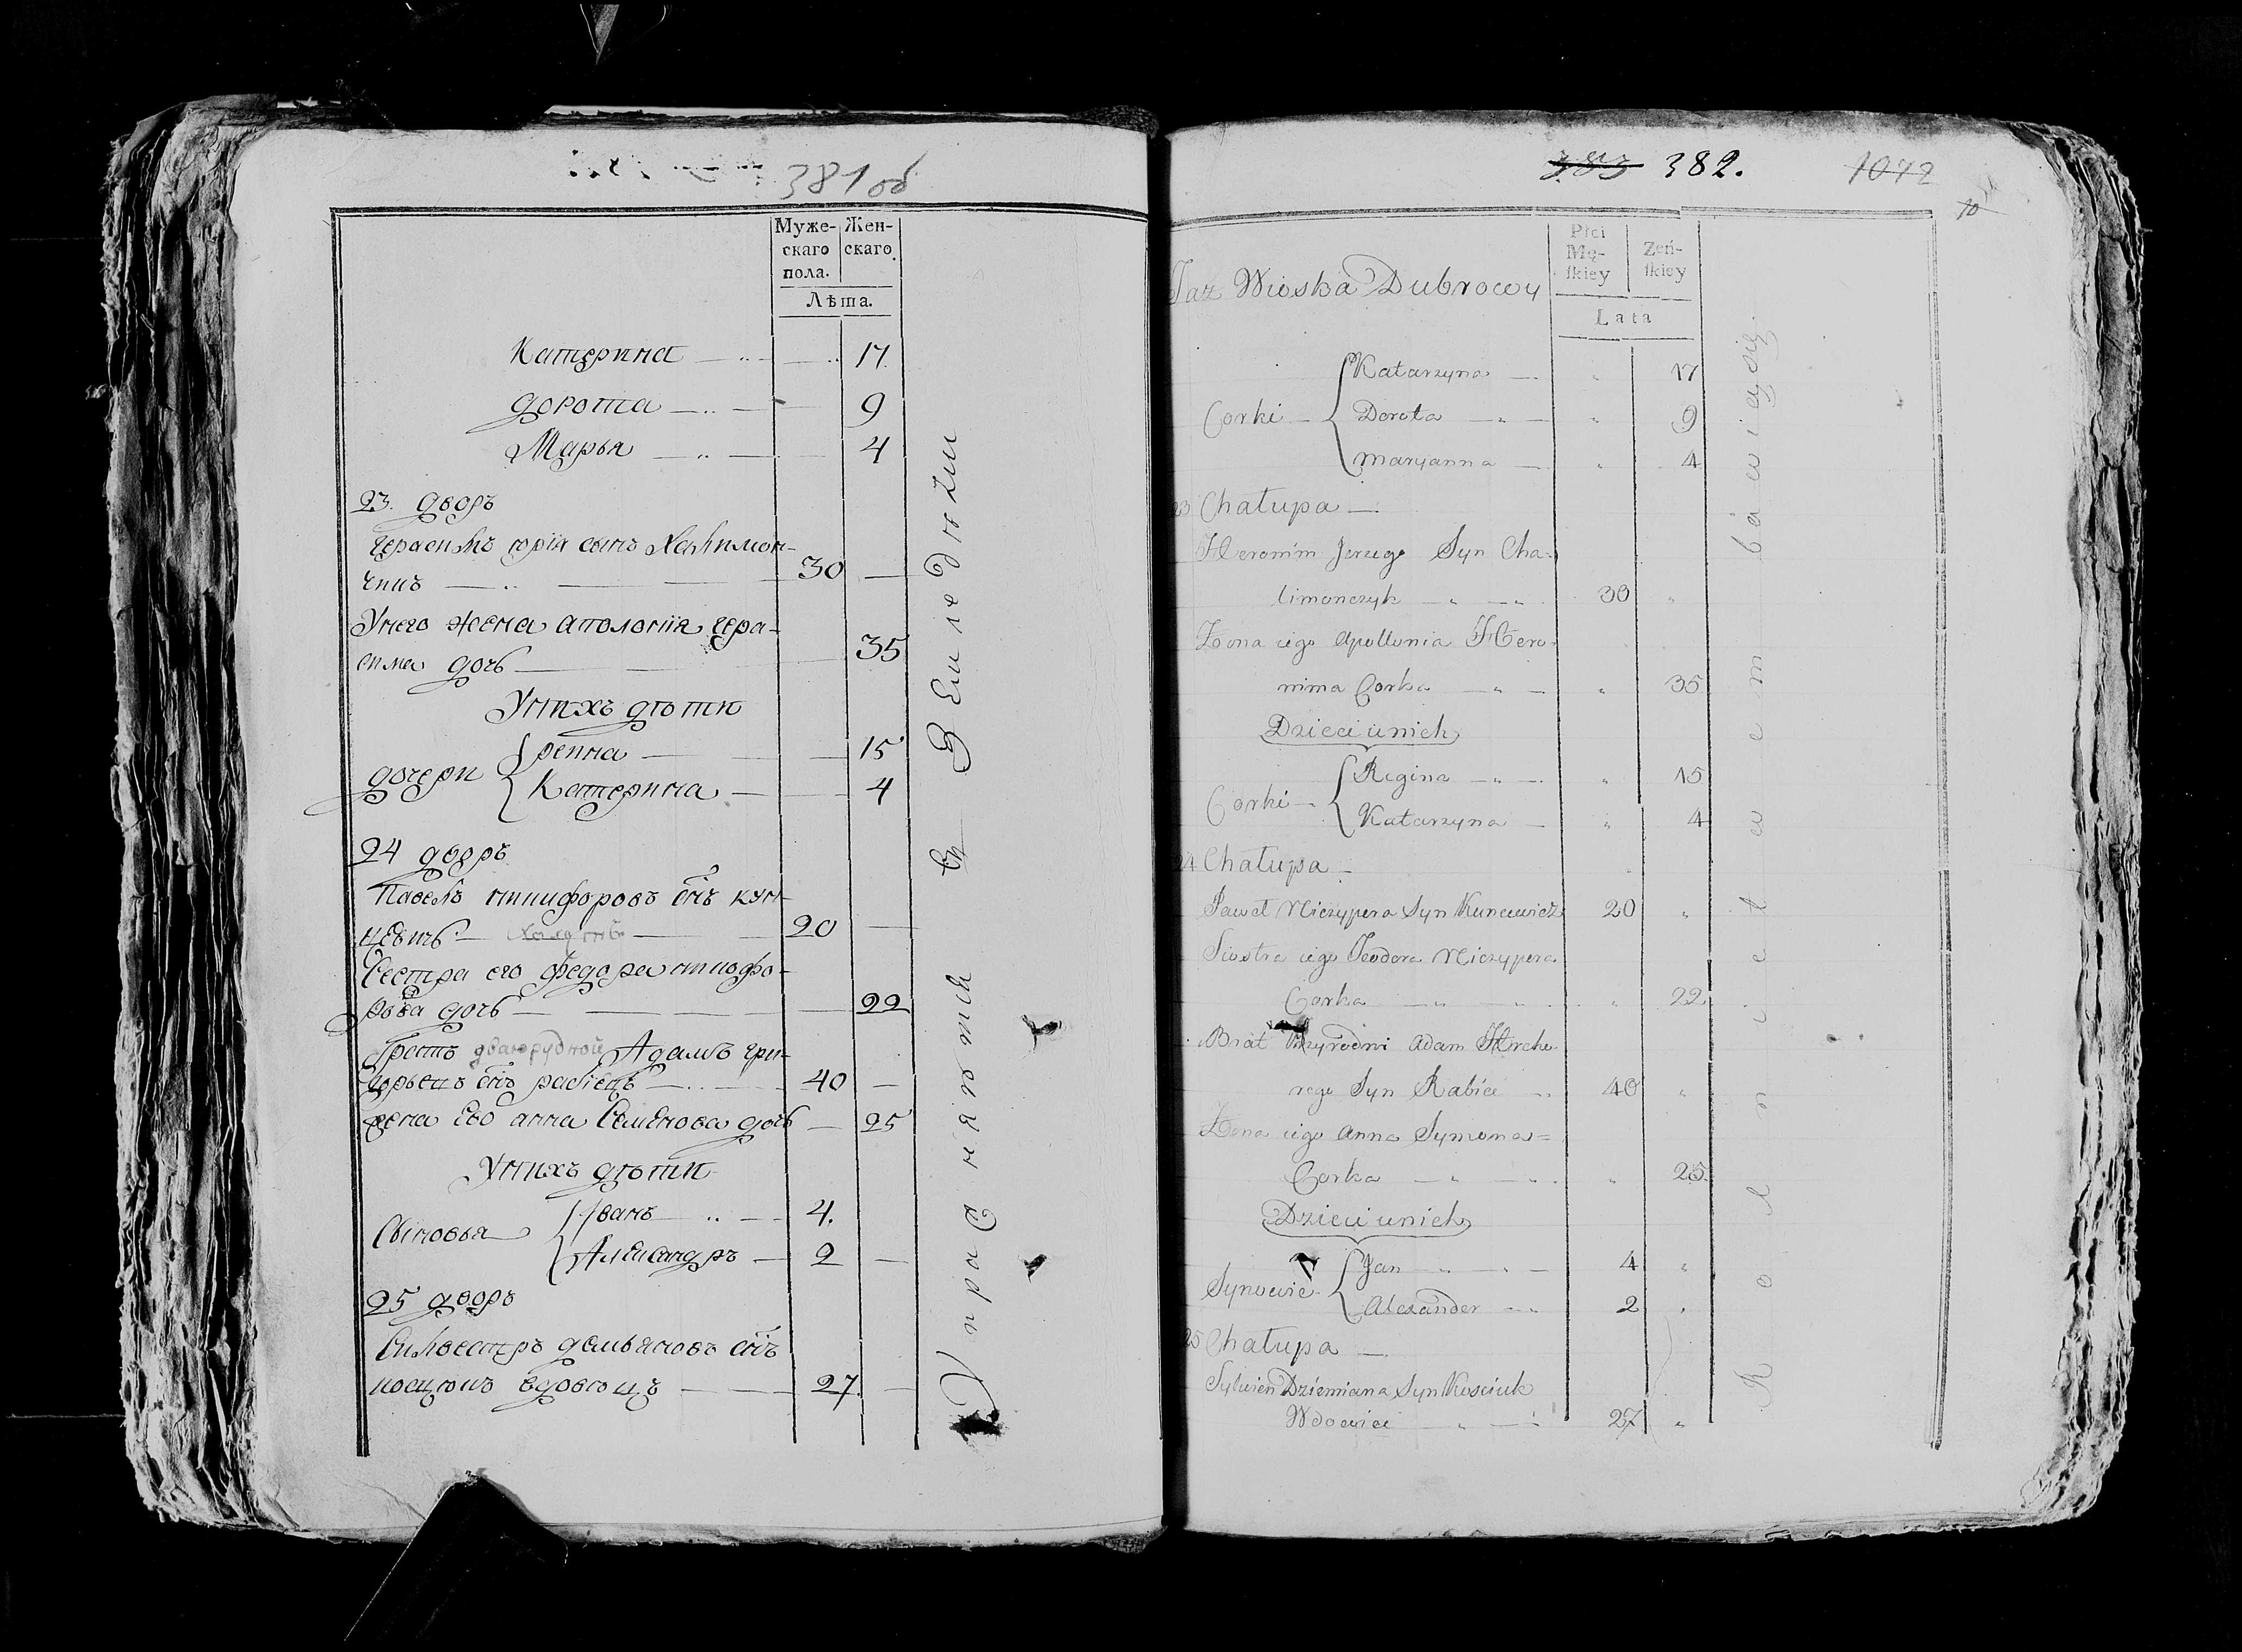 381 об
Муже-
скаго
пола.
Жен-
скаго.
Лѣта.
Катерина 17.
дорота 9
Марья 4
23. дворъ
Герасимъ юрія сынъ Халимон-
чикъ 30 —
Унего жена аполонія гера-
сима дочь 35
Унихъ дѣти
дочери
реина 15
Катерина 4
24 дворъ
Павелъ ничифоровъ снъ кун-
цевичъ 20 —
Сестра его федора ничофо-
рова дочь 22
двоюрудной Адамъ гри-
горьевъ снъ рабецъ 40 —
жена Его анна Семенова дочь 25
Унихъ дѣти
Сыновья
Иванъ 4.
Александръ 2 —
25 дворъ
Силвестръ демьяновъ снъ
косцюкъ вдовецъ 27. —
Упражняются въ Земледелии
383 382.
1072
10
Taż Wioska Dubrowy
Płci
Mę-
ſkiey
Żeń-
ſkiey
Lata
Corki
Katarzyna 17
Dorota 9
Maryanna 4
23 Chałupa
Heronim Jerzego Syn Cha-
limonczyk 30
Zona iego Apollonia Hero-
nima Corka 35
Dzieci u nich
Corki
Regina 15
Katarzyna 4
24 Chałupa
Paweł Niczypera Syn Kuncewicz 20
Siostra iego Teodora Niczypera
Corka 22
Brat Przyrodni Adam Hreho-
rego Syn Rabiec 40
Zona iego Anna Symona
Corka 25.
Dzieci u nich
Synowie
Jan 4
Alexander 2
25 Chałupa
Sylwester Dziemiana Syn Kosciuk
Wdowiec 27
Rolnictwem bawią się.